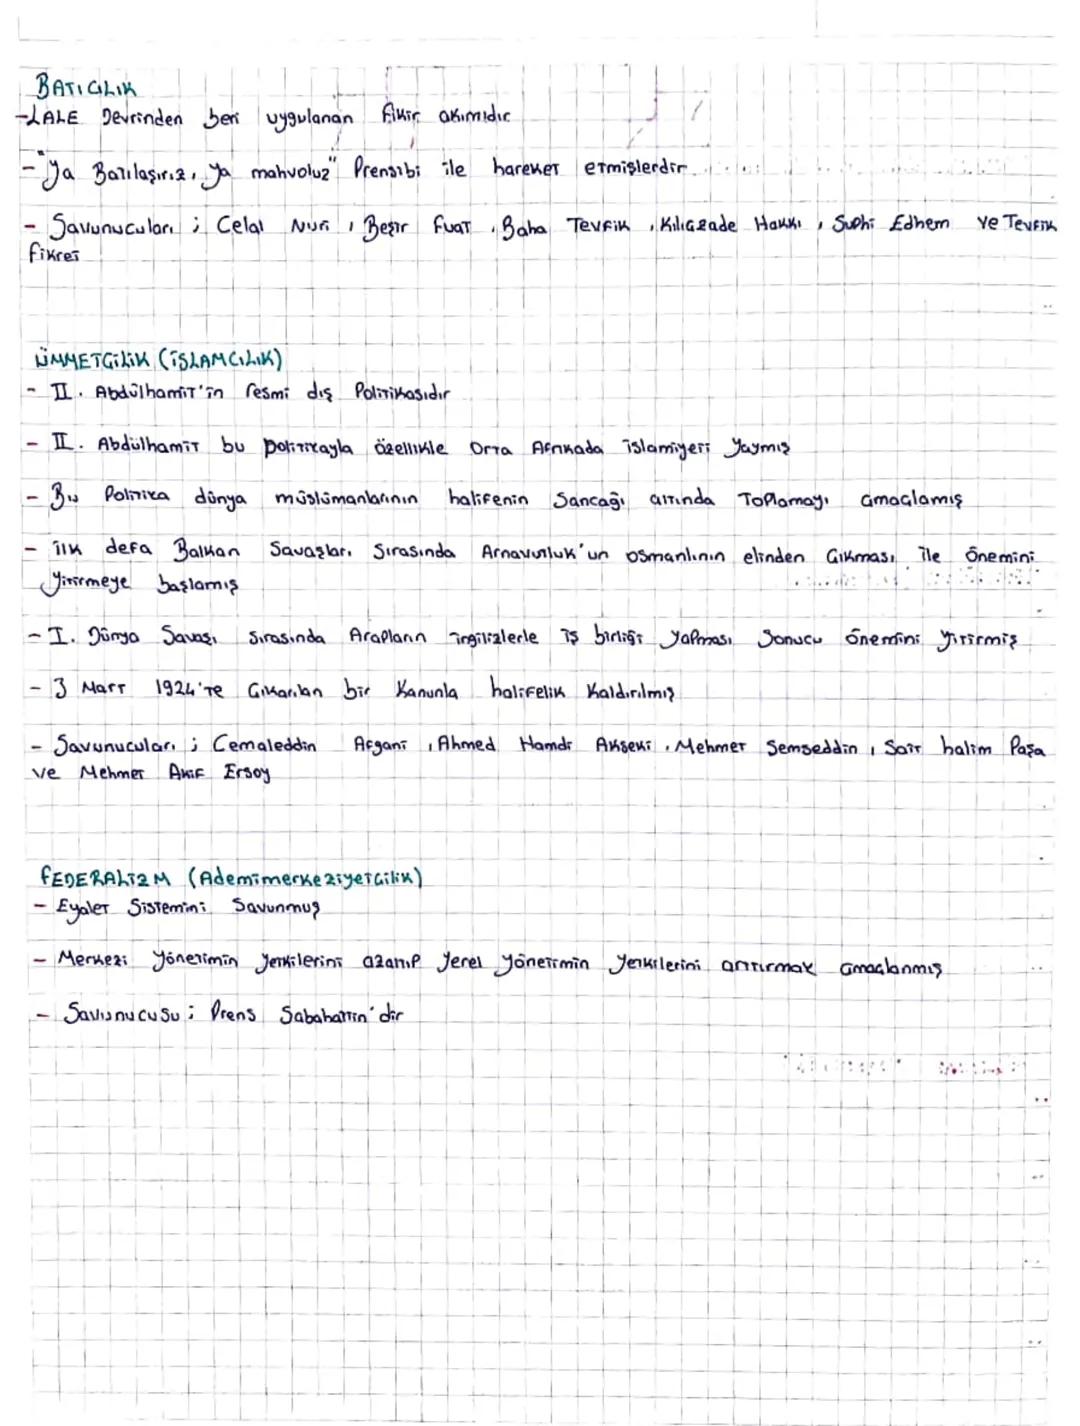 BATICILIK
-LALE Devrinden beri uygulanan fikir akımıdır
- "Ya Batılaşırız, ya mahvoluz" Prensibi ile hareket etmişlerdir
- Savunucuları ; Celal Nuri , Beşir Fuat , Baha Tevfik , Kılıçzade Hakkı , Suphi Edhem ve Tevfik
fikret
ÜMMETÇİLİK (İSLAMCILIK)
- II. Abdülhamit'in resmi dış Politikasıdır
- II. Abdülhamit bu politikayla özellikle Orta Afrikada islamiyeti Yaymış
- Bu Politika dünya müslümanlarının halifenin Sancağı altında Toplamayı amaçlamış
- ilk defa Balkan Savaşları Sırasında Arnavutluk'un osmanlının elinden Çıkması ile Önemini
Yitirmeye başlamış
- I. Dünya Savaşı Sırasında Arapların ingilizlerle iş birliği yapması Sonucu önemini yitirmiş
- 3 Mart 1924'te Çıkarılan bir Kanunla halifelik Kaldırılmış
- Savunucuları ; Cemaleddin Afgani , Ahmed Hamdi Akseki , Mehmet Semseddin , Sait halim Paşa
ve Mehmet Akif Ersoy
FEDERALİZM (Ademimerkeziyetçilik)
- Eyalet Sistemini Savunmuş
- Merkezi yönetimin yetkilerini azatıp Yerel yönetimin yetkilerini arttırmak amaçlanmış
- Savunucusu ; Prens Sabahattin'dir